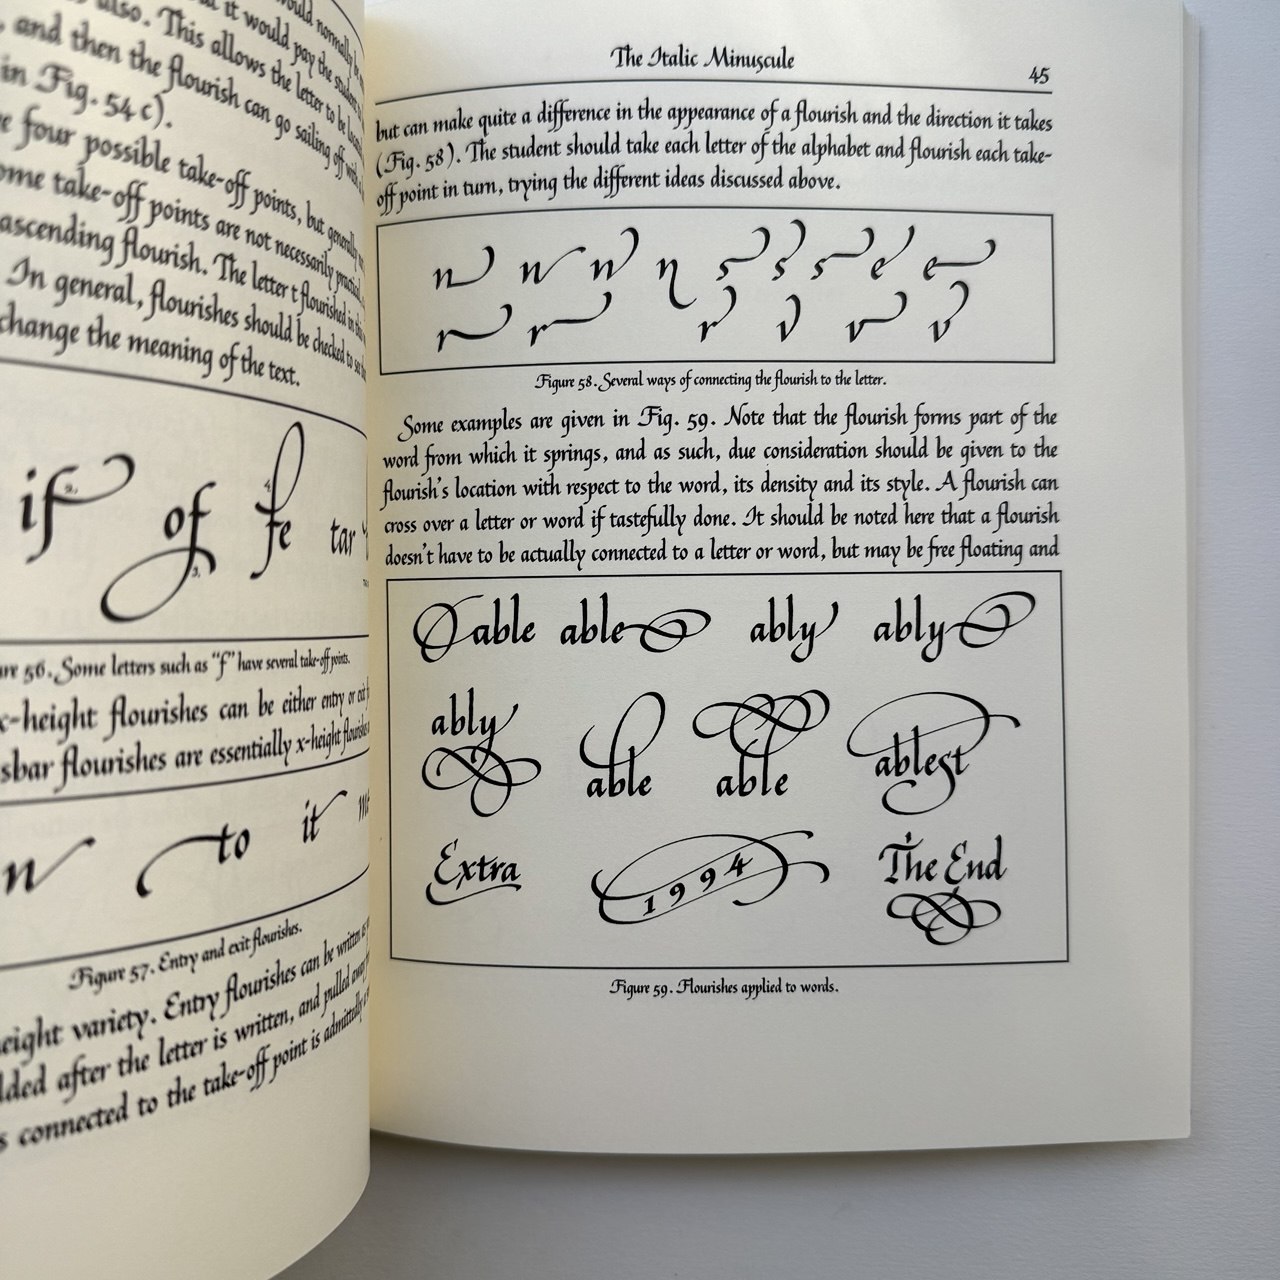 would normally be
it would pay the student
also. This allows the letter to be
, and then the flourish can go sailing off with
in Fig. 54 c).
four possible take-off points, but generally
ome take-off points are not necessarily practical
ascending flourish. The letter t flourished in this
In general, flourishes should be checked to see
change the meaning of the text.
if of fe tar
2. 3. 4.
ure 56. Some letters such as "f" have several take-off points.
x-height flourishes can be either entry or exit
sbar flourishes are essentially x-height flourishes
n to it
Figure 57. Entry and exit flourishes.
eight variety. Entry flourishes can be written as
dded after the letter is written, and pulled away
s connected to the take-off point is admittedly
The Italic Minuscule
45
but can make quite a difference in the appearance of a flourish and the direction it takes
(Fig. 58). The student should take each letter of the alphabet and flourish each take-
off point in turn, trying the different ideas discussed above.
n n n n s s s e e
r r r v v v
Figure 58. Several ways of connecting the flourish to the letter.
Some examples are given in Fig. 59. Note that the flourish forms part of the
word from which it springs, and as such, due consideration should be given to the
flourish's location with respect to the word, its density and its style. A flourish can
cross over a letter or word if tastefully done. It should be noted here that a flourish
doesn't have to be actually connected to a letter or word, but may be free floating and
able able ably ably
ably able able ablest
Extra 1994 The End
Figure 59. Flourishes applied to words.